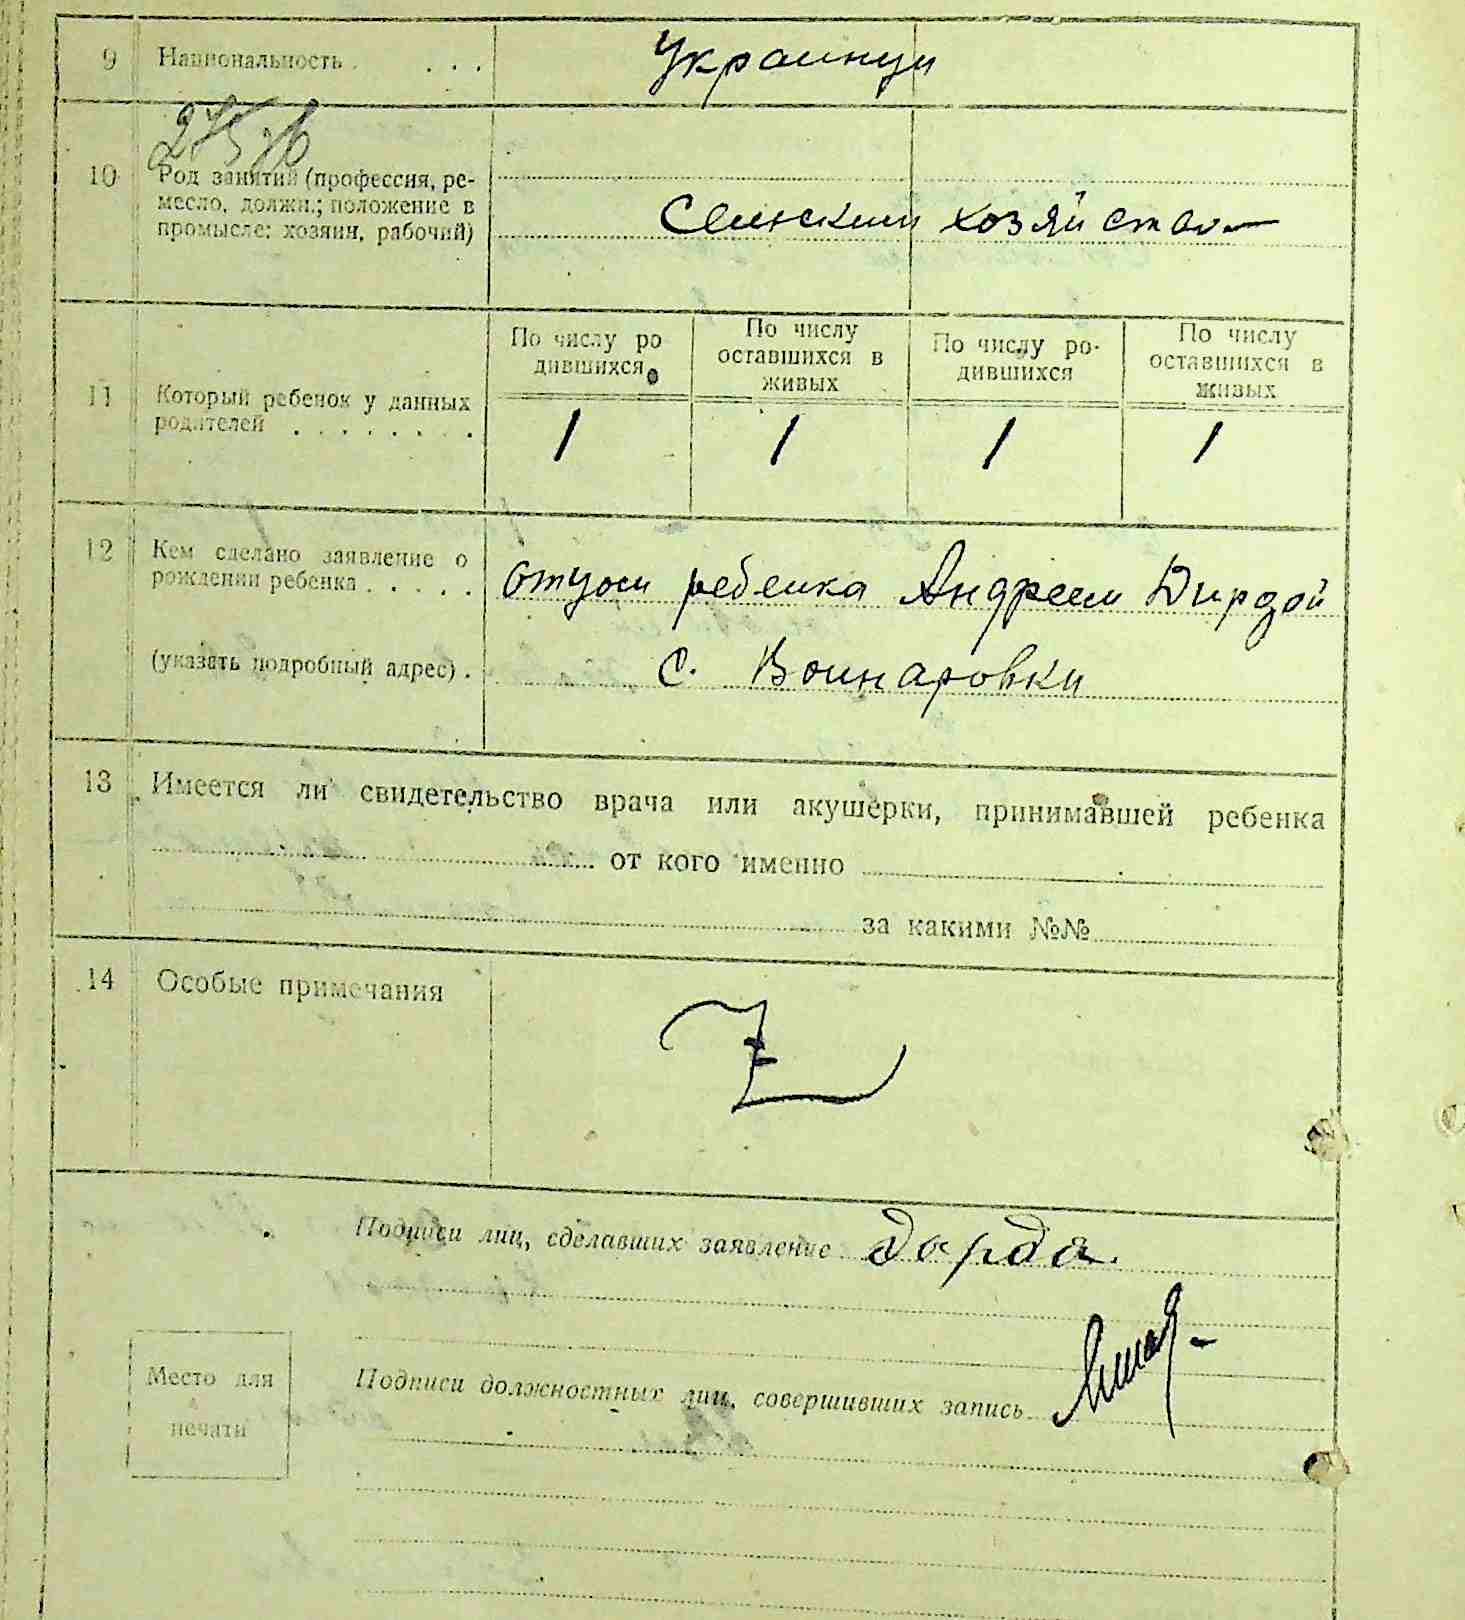 9 Национальность . . . . Украинци
10 Род занятий (профессия, ре-
месло, должн.; положение в
промысле: хозяин, рабочий)
Сельским хозяйством
По числу ро
дившихся
По числу
оставшихся в
живых
По числу ро-
дившихся
По числу
оставшихся в
живых
11 Который ребенок у данных
родителей . . . . . . . .
1 1 1 1
12 Кем сделано заявление о
рождении ребенка . . . . .
отцом ребенка Андреем Дирдой
(указать подробный адрес) .
с. Воинаровки
13 Имеется ли свидетельство врача или акушерки, принимавшей ребенка
от кого именно
за какими №№
14 Особые примечания
Z
Подписи лиц, сделавших заявление Дарда.
Место для
печати
Подписи должностных лиц, совершивших запись